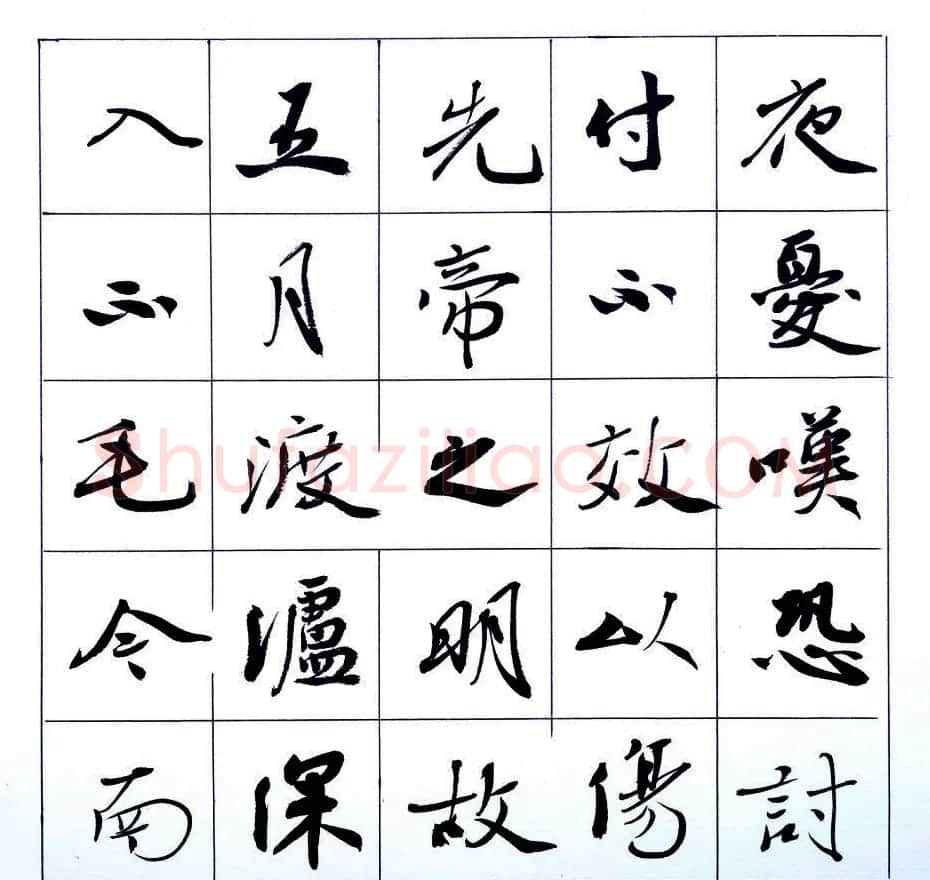 夜憂嘆恐討
付不效以傷
先帝之明故
五月渡瀘深
入不毛今南
Shufaziliao.COM